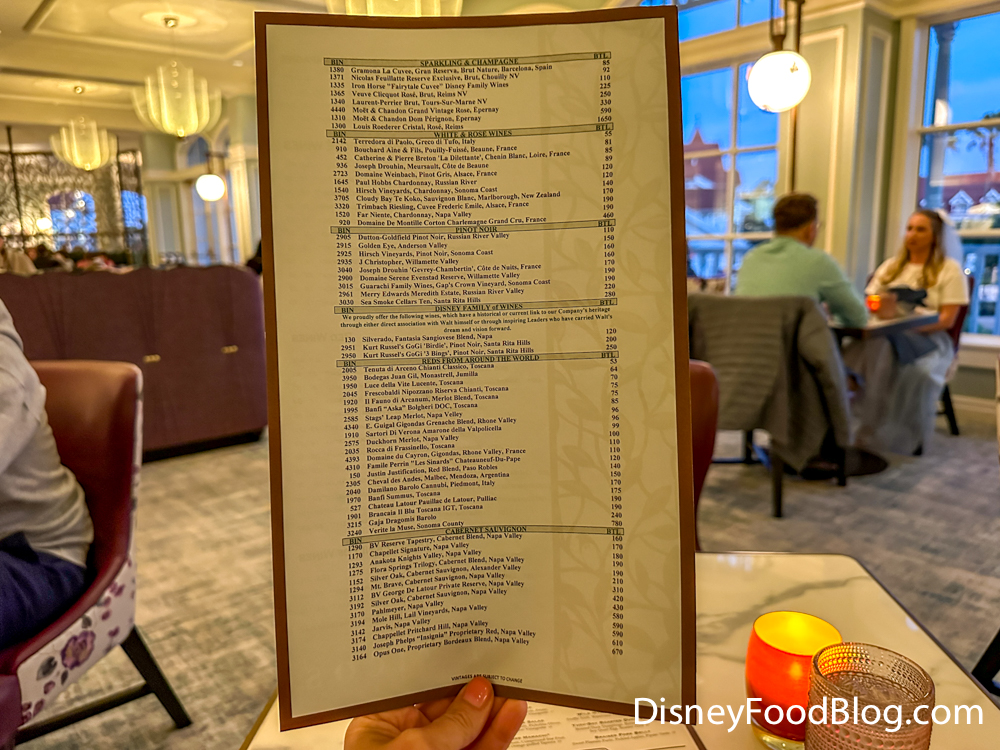 BIN SPARKLING & CHAMPAGNE BTL
1380 Gramona La Cuvee, Gran Reserva, Brut Nature, Barcelona, Spain 85
1371 Nicolas Feuillatte Reserve Exclusive, Brut, Chouilly NV 92
1335 Iron Horse "Fairytale Cuvee" Disney Family Wines 110
1365 Veuve Clicquot Rosé, Brut, Reims NV 225
1340 Laurent-Perrier Brut, Tours-Sur-Marne NV 250
4440 Moët & Chandon Grand Vintage Rose, Epernay 330
1310 Moët & Chandon Dom Pérignon, Epernay 590
1300 Louis Roederer Cristal, Rosé, Reims 1650
BIN WHITE & ROSE WINES BTL
2142 Terredora di Paolo, Greco di Tufo, Italy 55
910 Bouchard Aine & Fils, Pouilly-Fuissé, Beaune, France 81
452 Catherine & Pierre Breton 'La Dilettante', Chenin Blanc, Loire, France 85
936 Joseph Drouhin, Meursault, Côte de Beaune 89
2723 Domaine Weinbach, Pinot Gris, Alsace, France 120
1645 Paul Hobbs Chardonnay, Russian River 120
1540 Hirsch Vineyards, Chardonnay, Sonoma Coast 140
3705 Cloudy Bay Te Koko, Sauvignon Blanc, Marlborough, New Zealand 170
3320 Trimbach Riesling, Cuvee Frederic Emile, Alsace, France 190
1520 Far Niente, Chardonnay, Napa Valley 190
920 Domaine De Montille Corton Charlemagne Grand Cru, France 460
BIN PINOT NOIR BTL
2905 Dutton-Goldfield Pinot Noir, Russian River Valley 110
2915 Golden Eye, Anderson Valley 150
2925 Hirsch Vineyards, Pinot Noir, Sonoma Coast 160
2935 J Christopher, Willamette Valley 160
3040 Joseph Drouhin 'Gevrey-Chambertin', Côte de Nuits, France 170
2900 Domaine Serene Evenstad Reserve, Willamette Valley 190
3015 Guarachi Family Wines, Gap's Crown Vineyard, Sonoma Coast 190
2961 Merry Edwards Meredith Estate, Russian River Valley 220
3030 Sea Smoke Cellars Ten, Santa Rita Hills 280
BIN DISNEY FAMILY of WINES BTL
We proudly offer the following wines, which have a historical or current link to our Company's heritage
through either direct association with Walt himself or through inspiring Leaders who have carried Walt's
dream and vision forward.
130 Silverado, Fantasia Sangiovese Blend, Napa 120
2951 Kurt Russel's GoGi 'Birdie', Pinot Noir, Santa Rita Hills 200
2950 Kurt Russel's GoGi '3 Bings', Pinot Noir, Santa Rita Hills 250
BIN REDS FROM AROUND THE WORLD BTL
2005 Tenuta di Arceno Chianti Classico, Toscana 53
3950 Bodegas Juan Gil, Monastrell, Jumilla 64
1950 Luce della Vite Lucente, Toscana 70
2045 Frescobaldi Nipozzano Riserva Chianti, Toscana 75
1920 Il Fauno di Arcanum, Merlot Blend, Toscana 75
1995 Banfi "Aska" Bolgheri DOC, Toscana 85
2585 Stags' Leap Merlot, Napa Velley 96
4340 E. Guigal Gigondas Grenache Blend, Rhone Valley 96
1910 Sartori Di Verona Amarone della Valpolicella 99
2575 Duckhorn Merlot, Napa Valley 100
2035 Rocca di Frassinello, Toscana 110
4393 Domaine du Cayron, Gigondas, Rhone Valley, France 110
4310 Famile Perrin "Les Sinards" Chateauneuf-Du-Pape 120
150 Justin Justification, Red Blend, Paso Robles 140
2305 Cheval des Andes, Malbec, Mendoza, Argentina 150
2040 Damilano Barolo Cannubi, Piedmont, Italy 170
1970 Banfi Summus, Toscana 175
527 Chateau Latour Pauillac de Latour, Pulliac 190
1901 Brancaia Il Blu Toscana IGT, Toscana 190
3215 Gaja Dragomis Barolo 240
3240 Verite la Muse, Sonoma County 780
BIN CABERNET SAUVIGNON BTL
1290 BV Reserve Tapestry, Cabernet Blend, Napa Valley 160
1170 Chapellet Signature, Napa Valley 170
1293 Anakota Knights Valley, Napa Valley 180
1275 Flora Springs Trilogy, Cabernet Blend, Napa Valley 190
1152 Silver Oak, Cabernet Sauvignon, Alexander Valley 190
1294 Mt. Brave, Cabernet Sauvignon, Napa Valley 210
3112 BV George De Latour Private Reserve, Napa Valley 310
3192 Silver Oak, Cabernet Sauvignon, Napa Valley 420
3170 Pahlmeyer, Napa Valley 430
3194 Mole Hill, Lail Vineyards, Napa Valley 580
3142 Jarvis, Napa Valley 590
3174 Chappellet Pritchard Hill, Napa Valley 590
3140 Joseph Phelps "Insignia" Proprietary Red, Napa Valley 610
3164 Opus One, Proprietary Bordeaux Blend, Napa Valley 670
VINTAGES ARE SUBJECT TO CHANGE
DisneyFoodBlog.com